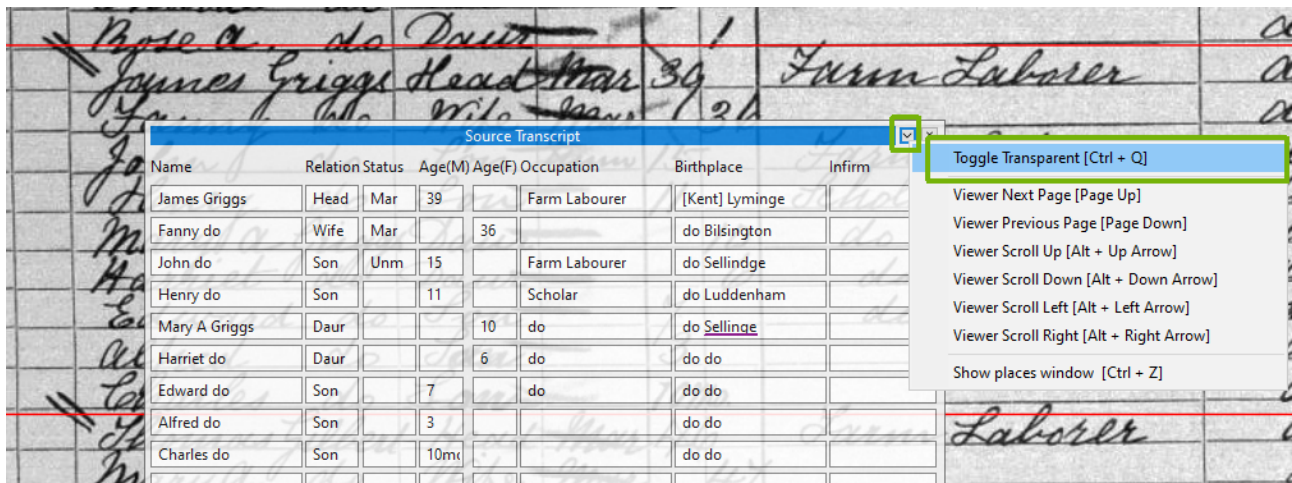 Rose a. do Daur 1
James Griggs Head Mar 39 Farm Laborer
Fanny do Wife Mar 36
Source Transcript
Name Relation Status Age(M) Age(F) Occupation Birthplace Infirm
James Griggs Head Mar 39 Farm Labourer [Kent] Lyminge
Fanny do Wife Mar 36 do Bilsington
John do Son Unm 15 Farm Labourer do Sellindge
Henry do Son 11 Scholar do Luddenham
Mary A Griggs Daur 10 do do Sellinge
Harriet do Daur 6 do do do
Edward do Son 7 do do do
Alfred do Son 3 do do
Charles do Son 10m do do
Laborer
Toggle Transparent [Ctrl + Q]
Viewer Next Page [Page Up]
Viewer Previous Page [Page Down]
Viewer Scroll Up [Alt + Up Arrow]
Viewer Scroll Down [Alt + Down Arrow]
Viewer Scroll Left [Alt + Left Arrow]
Viewer Scroll Right [Alt + Right Arrow]
Show places window [Ctrl + Z]